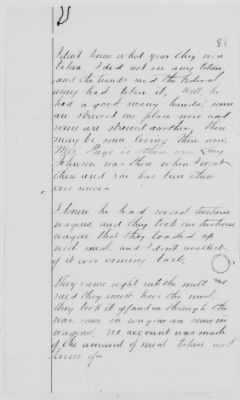 88
I don't know what year they was
taken I did not see any taken
and the hands said the Federal
army had taken it, Well, he
had a good many hands, some
are strewed one place now and
some are strewed another, there
may be some living there now,
Mrs. Page is there now
Johnson was there when I went
there and she has been there
ever since
I know he had several two horse
wagons, and they took in two horse
wagon that they loaded up
with meal, and I don't recollect
of it ever coming back,
They came right into the mill and
said they must have the meal,
they took it off and in through the
was some in wagons
wagons, no account was made
of the amount of meal taken as I
know of